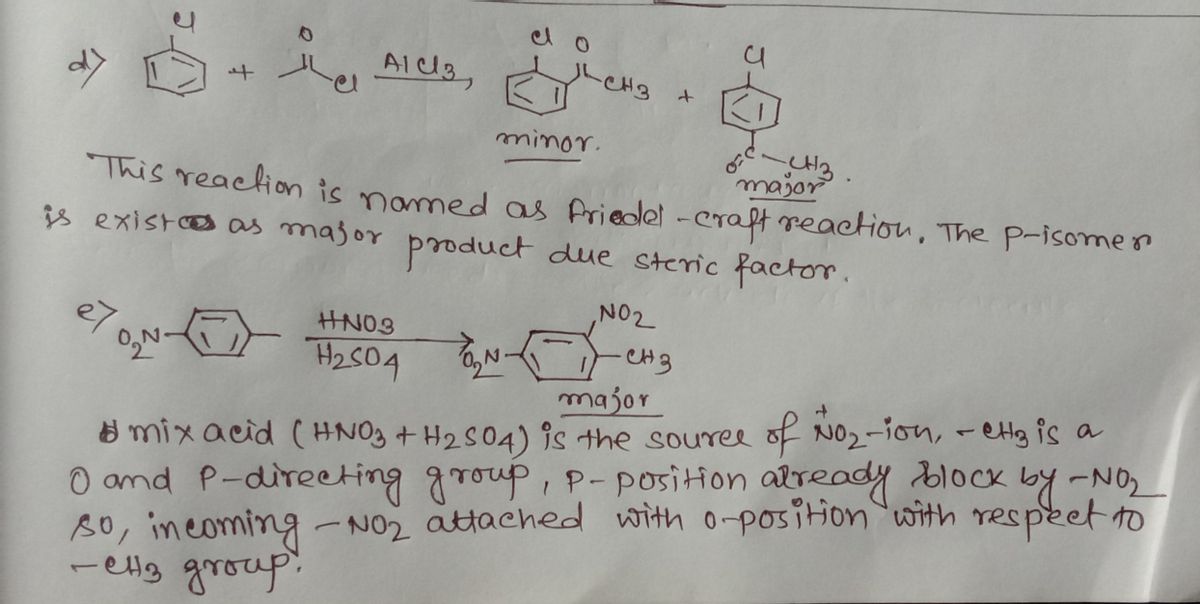 d) Cl + O Cl AlCl3, Cl O CH3 + Cl
minor.
O C-CH3.
major
This reaction is named as Friedel-craft reaction. The p-isomer
is exist as major product due steric factor.
e) O2N- HNO3 H2SO4 O2N- NO2 -CH3
major
mix acid (HNO3 + H2SO4) is the source of +NO2-ion, -CH3 is a
O and P-directing group, P-position already block by -NO2
so, incoming -NO2 attached with o-position with respect to
-CH3 group.